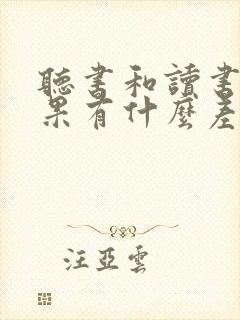 聽書和讀書
果有什麼差
汪亞雲